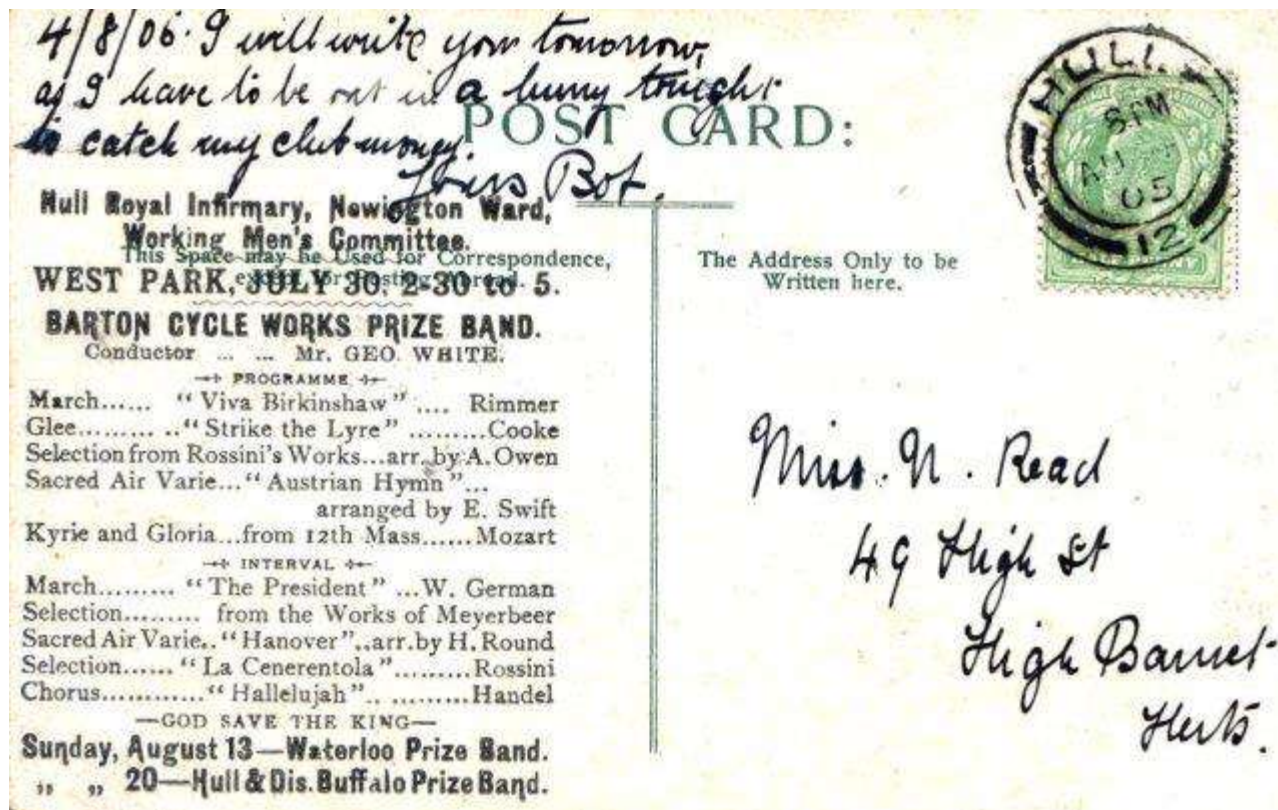 4/8/05. I will write you tomorrow,
as I have to be out in a hurry tonight
to catch my club money.
Bot.
POST CARD:
HULL
8 PM
AU
05
12
Hull Royal Infirmary, Newington Ward,
Working Men's Committee.
This Space may be Used for Correspondence,
WEST PARK, JULY 30, 2-30 to 5.
BARTON CYCLE WORKS PRIZE BAND.
Conductor ... ... Mr. GEO. WHITE.
PROGRAMME
March...... "Viva Birkinshaw" .... Rimmer
Glee......... .."Strike the Lyre" .........Cooke
Selection from Rossini's Works...arr. by A. Owen
Sacred Air Varie..."Austrian Hymn"...
arranged by E. Swift
Kyrie and Gloria...from 12th Mass......Mozart
INTERVAL
March......... "The President" ...W. German
Selection......... from the Works of Meyerbeer
Sacred Air Varie.. "Hanover"..arr. by H. Round
Selection...... "La Cenerentola".........Rossini
Chorus............"Hallelujah".. .........Handel
—GOD SAVE THE KING—
Sunday, August 13—Waterloo Prize Band.
„ „ 20—Hull & Dis. Buffalo Prize Band.
The Address Only to be
Written here.
Miss. N. Read
49 High St
High Barnet
Herts.